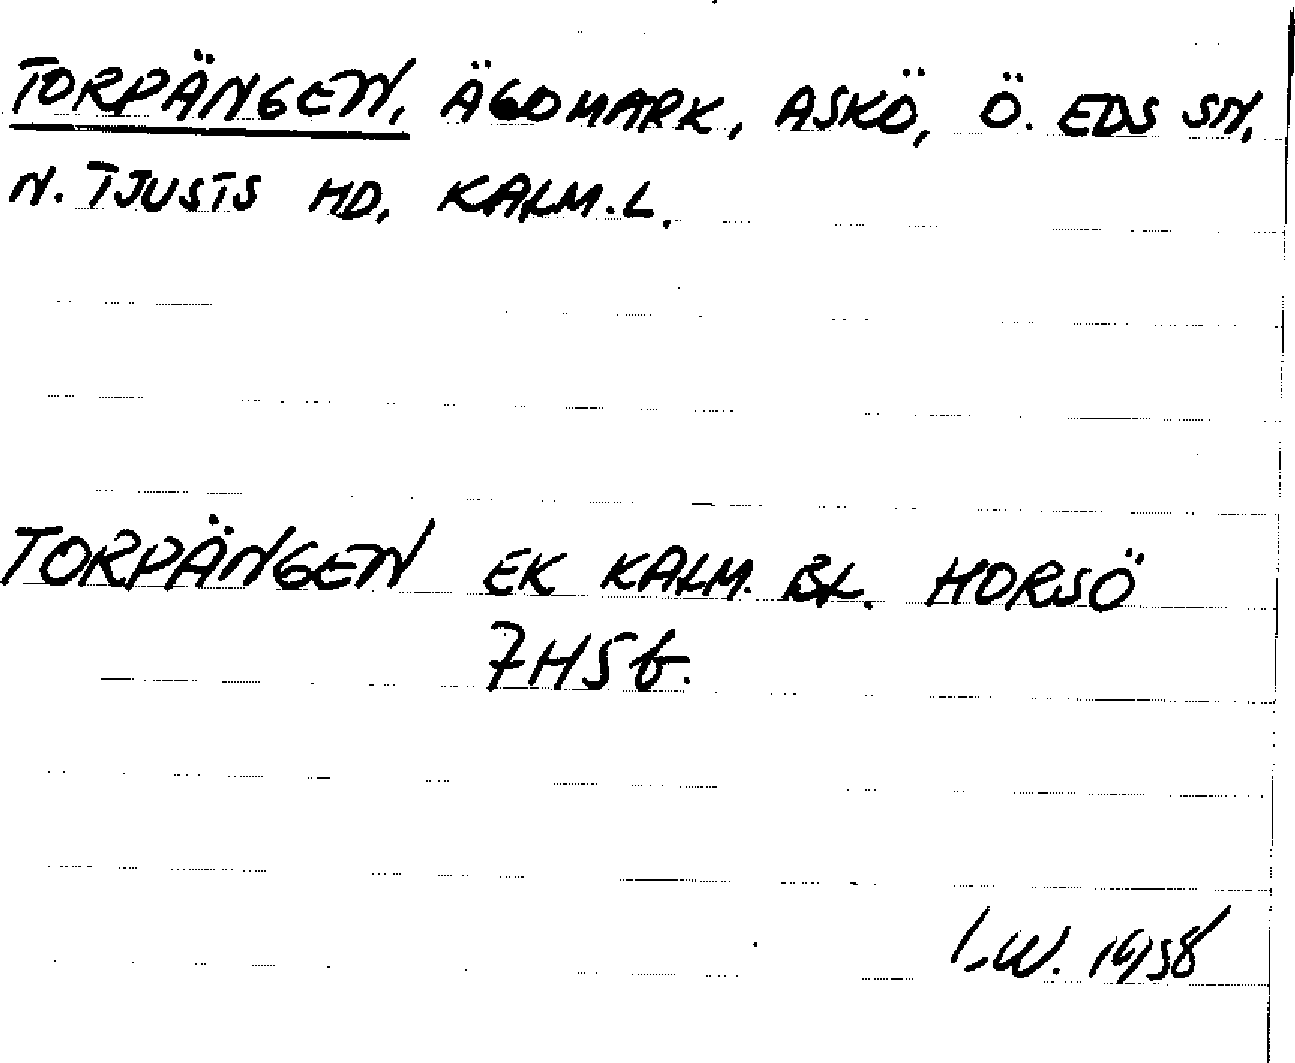 TORPÄNGEN, ÄGOMARK, ASKÖ, Ö. EDS SN,
N. TJUSTS HD, KALM.L.
TORPÄNGEN EK KALM. BL. HORSÖ
7H5b.
I.W. 1958